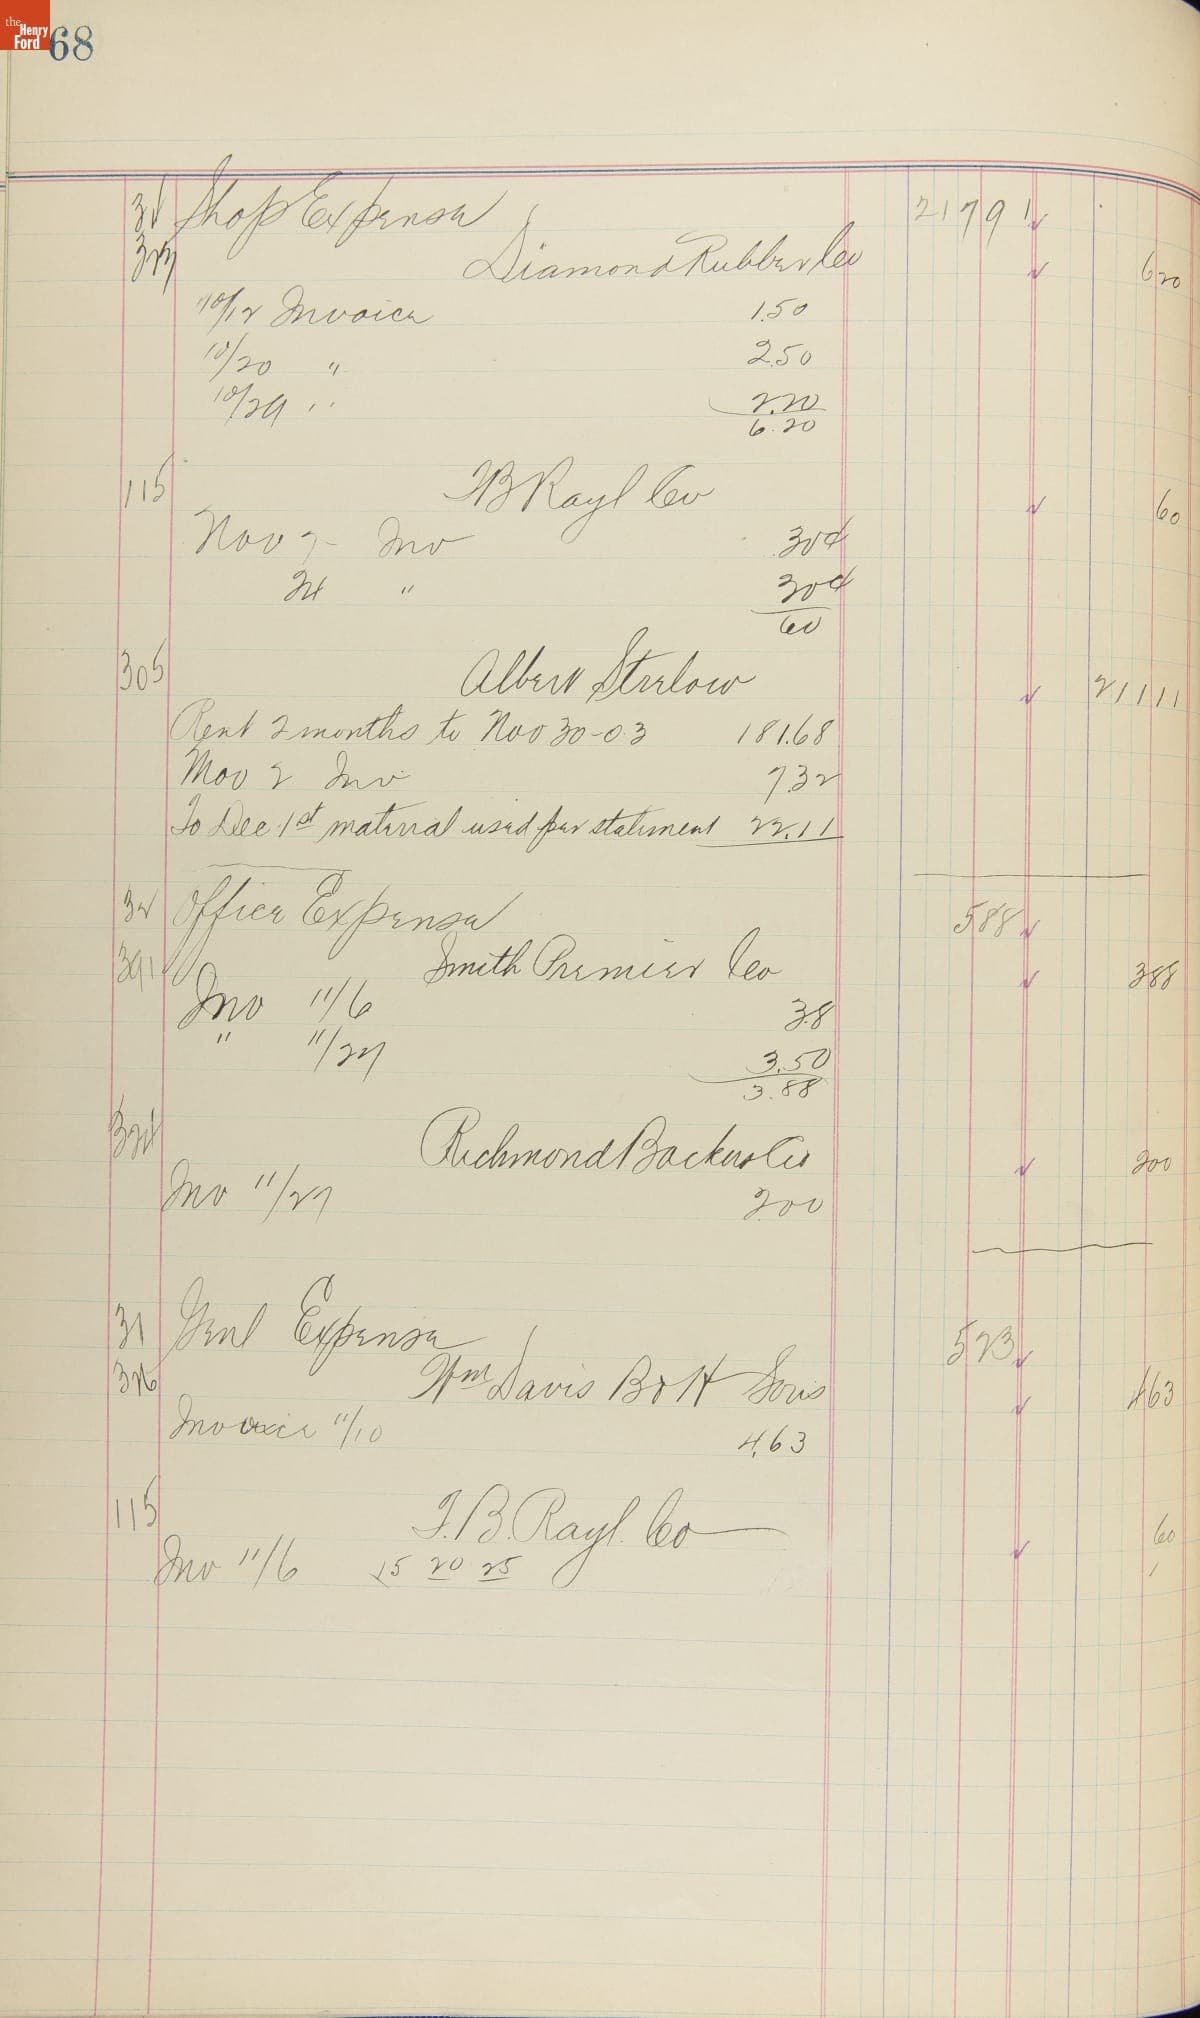 the Henry Ford
68
Shop Expense 217 91
Diamond Rubber Co 6 20
10/12 Invoice 1.50
10/20 " 2.50
10/29 " 2.20
6.20
115 T B Rayl Co 60
Nov 7 Inv .30¢
" 30¢
60
305 Albert Strelow 211 11
Rent 2 months to Nov 30-03 181.68
Nov 2 Inv 7.32
To Dec 1st material used per statement 22.11
Office Expense 5 88
391 Smith Premier Co 3 88
Inv 11/6 38
" 11/27 3.50
3.88
Richmond Backus Co 2 00
Inv 11/27 2.00
31 Genl Expense 5 23
Wm Davis B & H Sons 4 63
Invoice 11/10 4.63
115 T. B. Rayl. Co 60
Inv 11/6 15 20 25